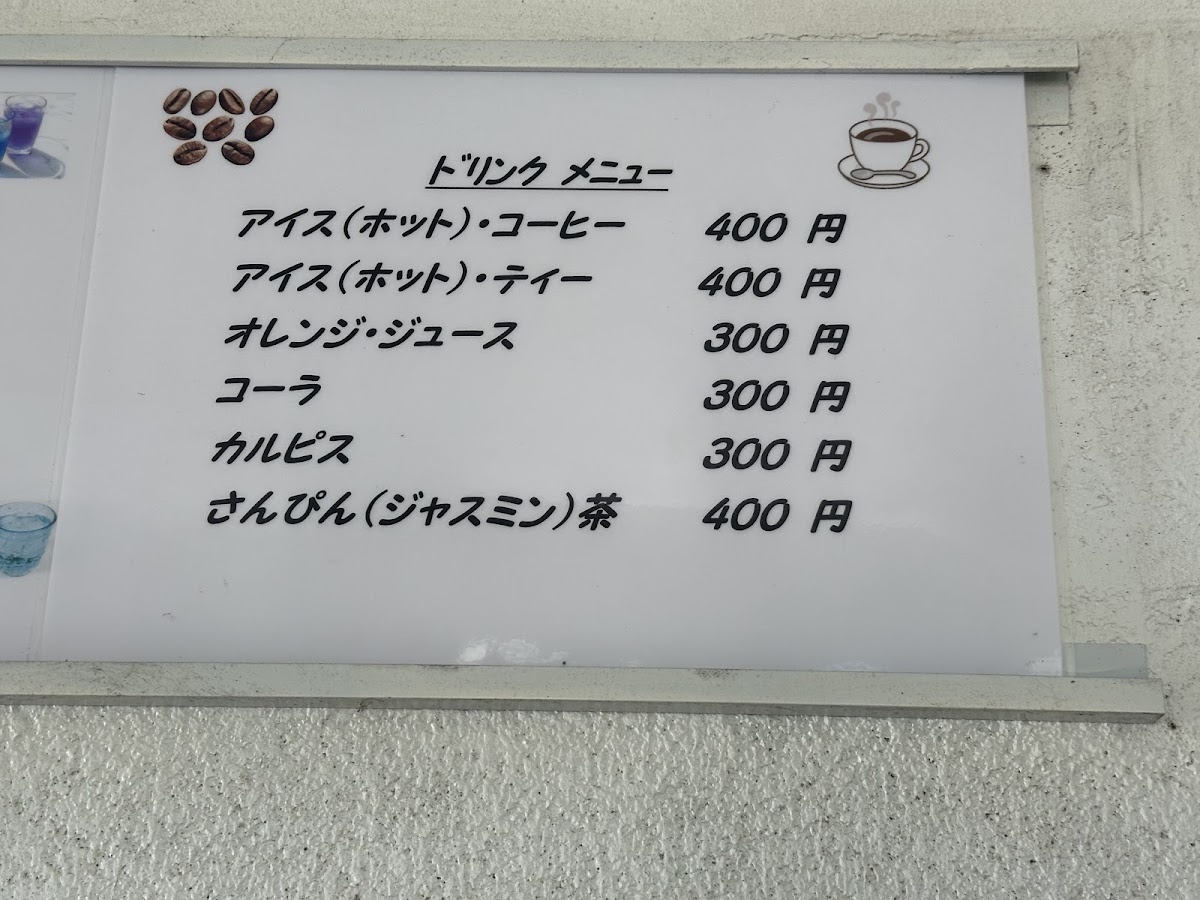 ドリンク メニュー
アイス(ホット)・コーヒー 400 円
アイス(ホット)・ティー 400 円
オレンジ・ジュース 300 円
コーラ 300 円
カルピス 300 円
さんぴん(ジャスミン)茶 400 円